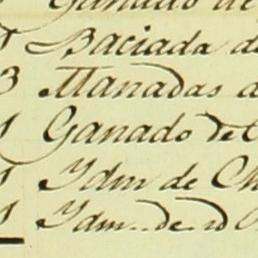 Ganado de
Baciada de
Manadas d
Ganado de
Ydm de Ch
Ydm. de. id